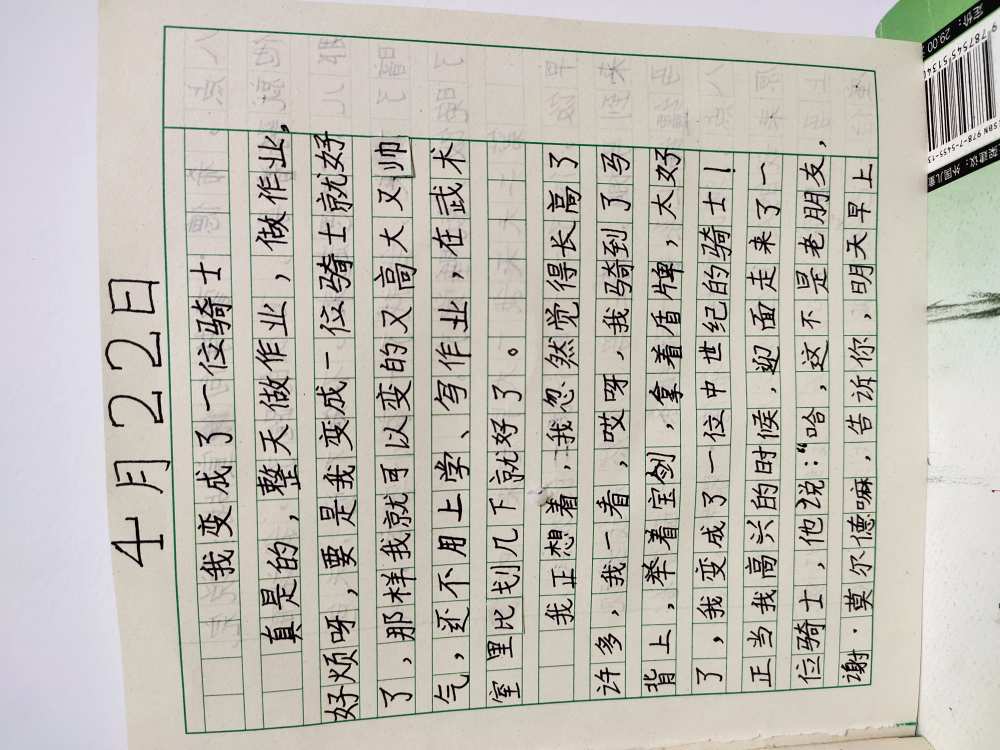 4月22日
我变成了一位骑士
真是的，整天做作业，做作业。
好烦呀，要是我变成一位骑士就好
了，那样我就可以变的又高大又帅
气，还不用上学、写作业，在武术
室里比划几下就好了。
我正想着，我忽然觉得长高了
许多，我一看，哎呀，我骑到了马
背上，举着宝剑，拿着盾牌，太好
了，我变成了一位中世纪的骑士！
正当我高兴的时候，迎面走来了一
位骑士，他说：“哈，这不是老朋友，
谢·莫尔德嘛，告诉你，明天早上
定价：29.00
外国儿童